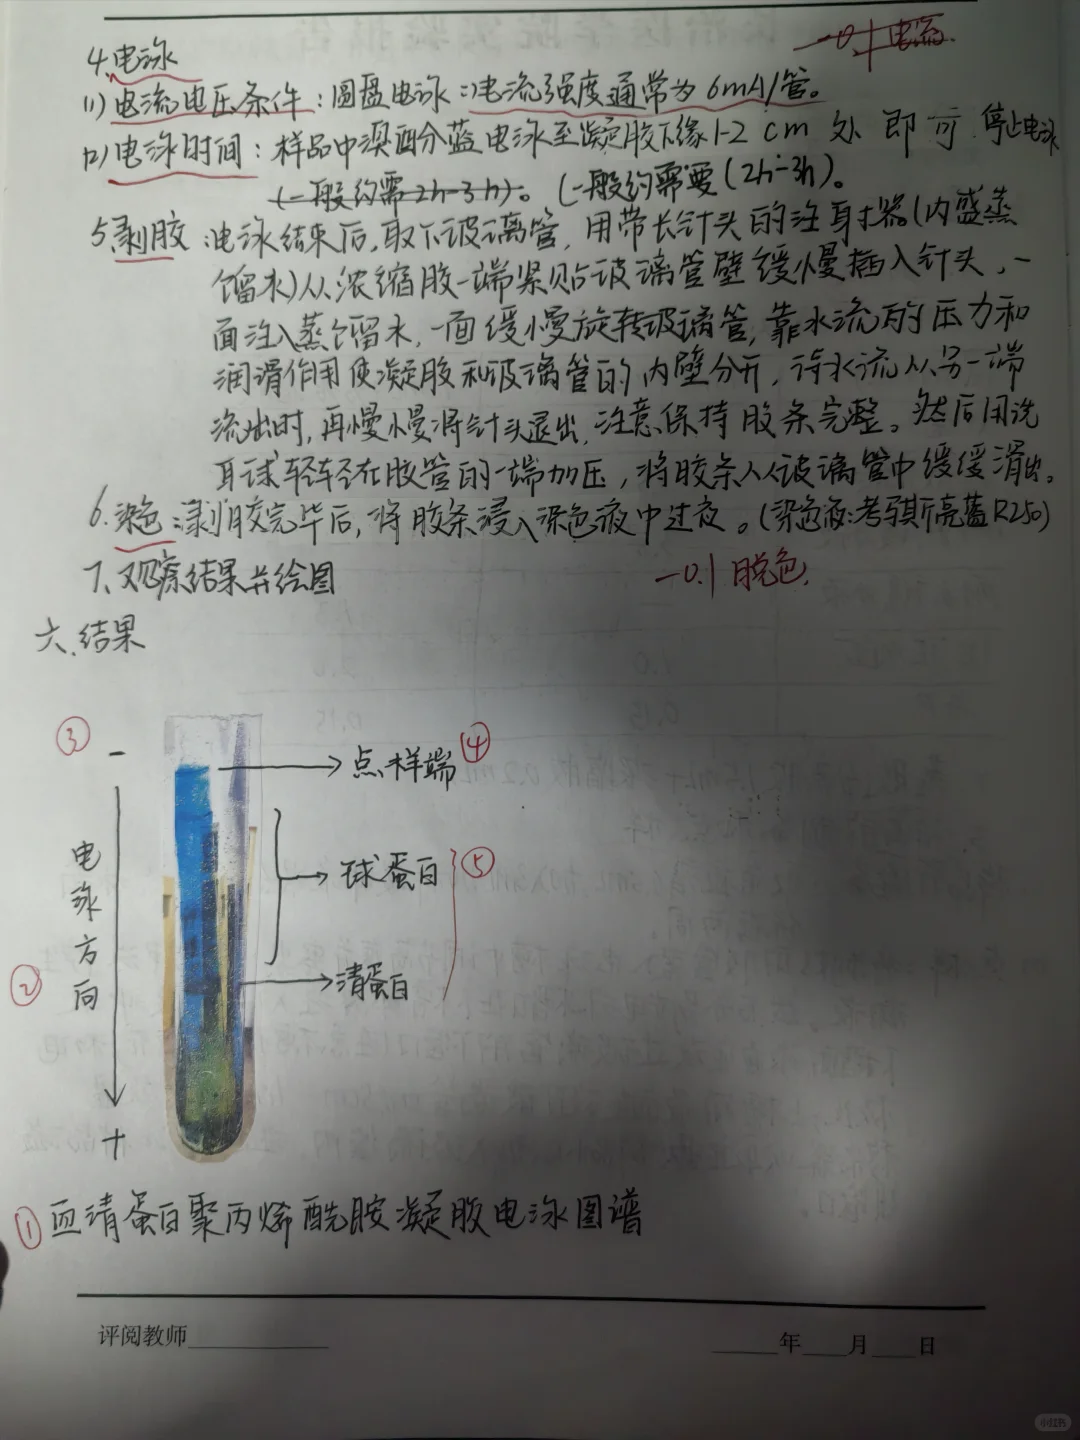 -0.1 电流
4.电泳
(1)电流电压条件:圆盘电泳:电流强度通常为6mA/管。
(2)电泳时间:样品中溴酚蓝电泳至凝胶下缘1-2cm处即可停止电泳
(一般约需2h-3h)。(一般约需要(2h-3h)。
5剥胶:电泳结束后,取下玻璃管,用带长针头的注射器(内盛蒸
馏水)从浓缩胶一端紧贴玻璃管壁缓慢插入针头,一
面注入蒸馏水,一面缓慢旋转玻璃管,靠水流的压力和
润滑作用使凝胶和玻璃管的内壁分开,待水流从另一端
流出时,再慢慢将针头退出,注意保持胶条完整。然后用洗
耳球轻轻在胶管的一端加压,将胶条从玻璃管中缓缓滑出。
6.染色:剥胶完毕后,将胶条浸入染色液中过夜。(染色液:考马斯亮蓝R250)
7、观察结果并绘图
-0.1 脱色.
六.结果
③ - 点样端 ④
电泳方向
球蛋白 ⑤
② 清蛋白
+
① 血清蛋白聚丙烯酰胺凝胶电泳图谱
评阅教师
年 月 日
小红书